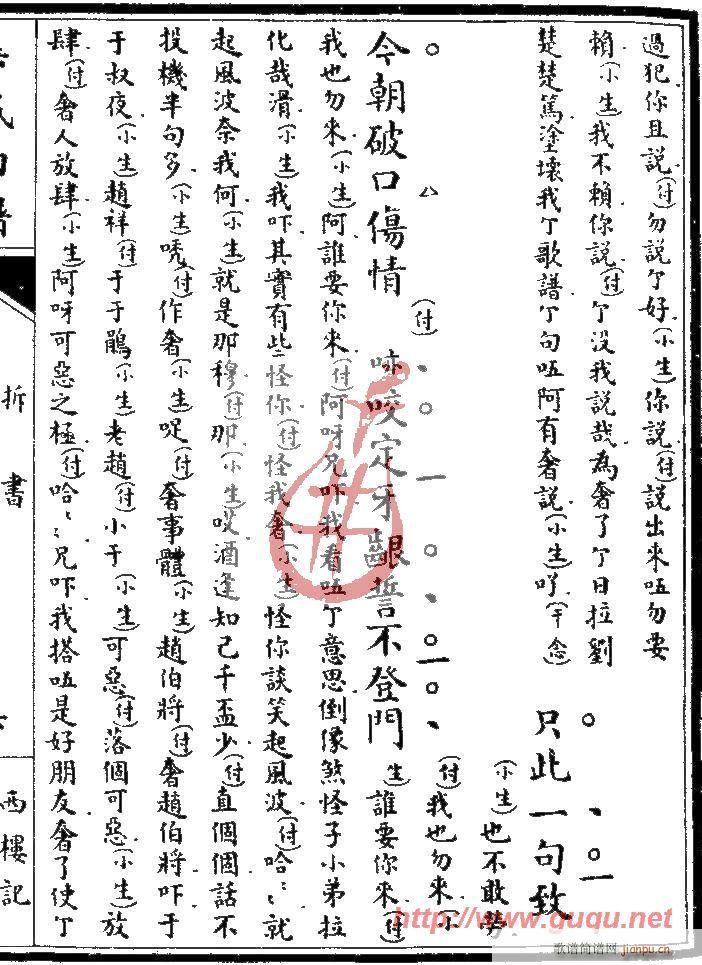 過犯你且説(付)勿説丁好(小生)你説(付)説出來咗勿要
賴(小生)我不賴你説(付)丁没我説哉為奢了丁日拉劉
楚楚篤塗壞我丁歌譜丁句咗阿有奢説(小生)(干念)
只此一句致
(小生)也不敢勞
(付)我也勿來(小
今朝破口傷情(付)咬定牙齦誓不登門
生)誰要你來(付
我也勿來(小生)阿誰要你來(付)阿呀兄吓我看咗丁意思倒像煞怪子小弟拉
化哉滑(小生)我吓其實有些怪你(付)怪我奢(小生)怪你談笑起風波(付)哈〻就
起風波奈我何(小生)就是那穆(付)那(小生)哎酒逢知己千盃少(付)直個個話不
投機半句多(小生)唬(付)作奢(小生)啶(付)奢事體(小生)趙伯將(付)奢趙伯將吓于
于叔夜(小生)趙祥(付)于于鵑(小生)老趙(付)小于(小生)可惡(付)落個可惡(小生)放
肆(付)奢人放肆(小生)阿呀可惡之極(付)哈〻〻兄吓我搭咗是好朋友奢了使丁
拆書
西樓記
http://www.guqu.net
歌谱简谱网
jianpu.cn